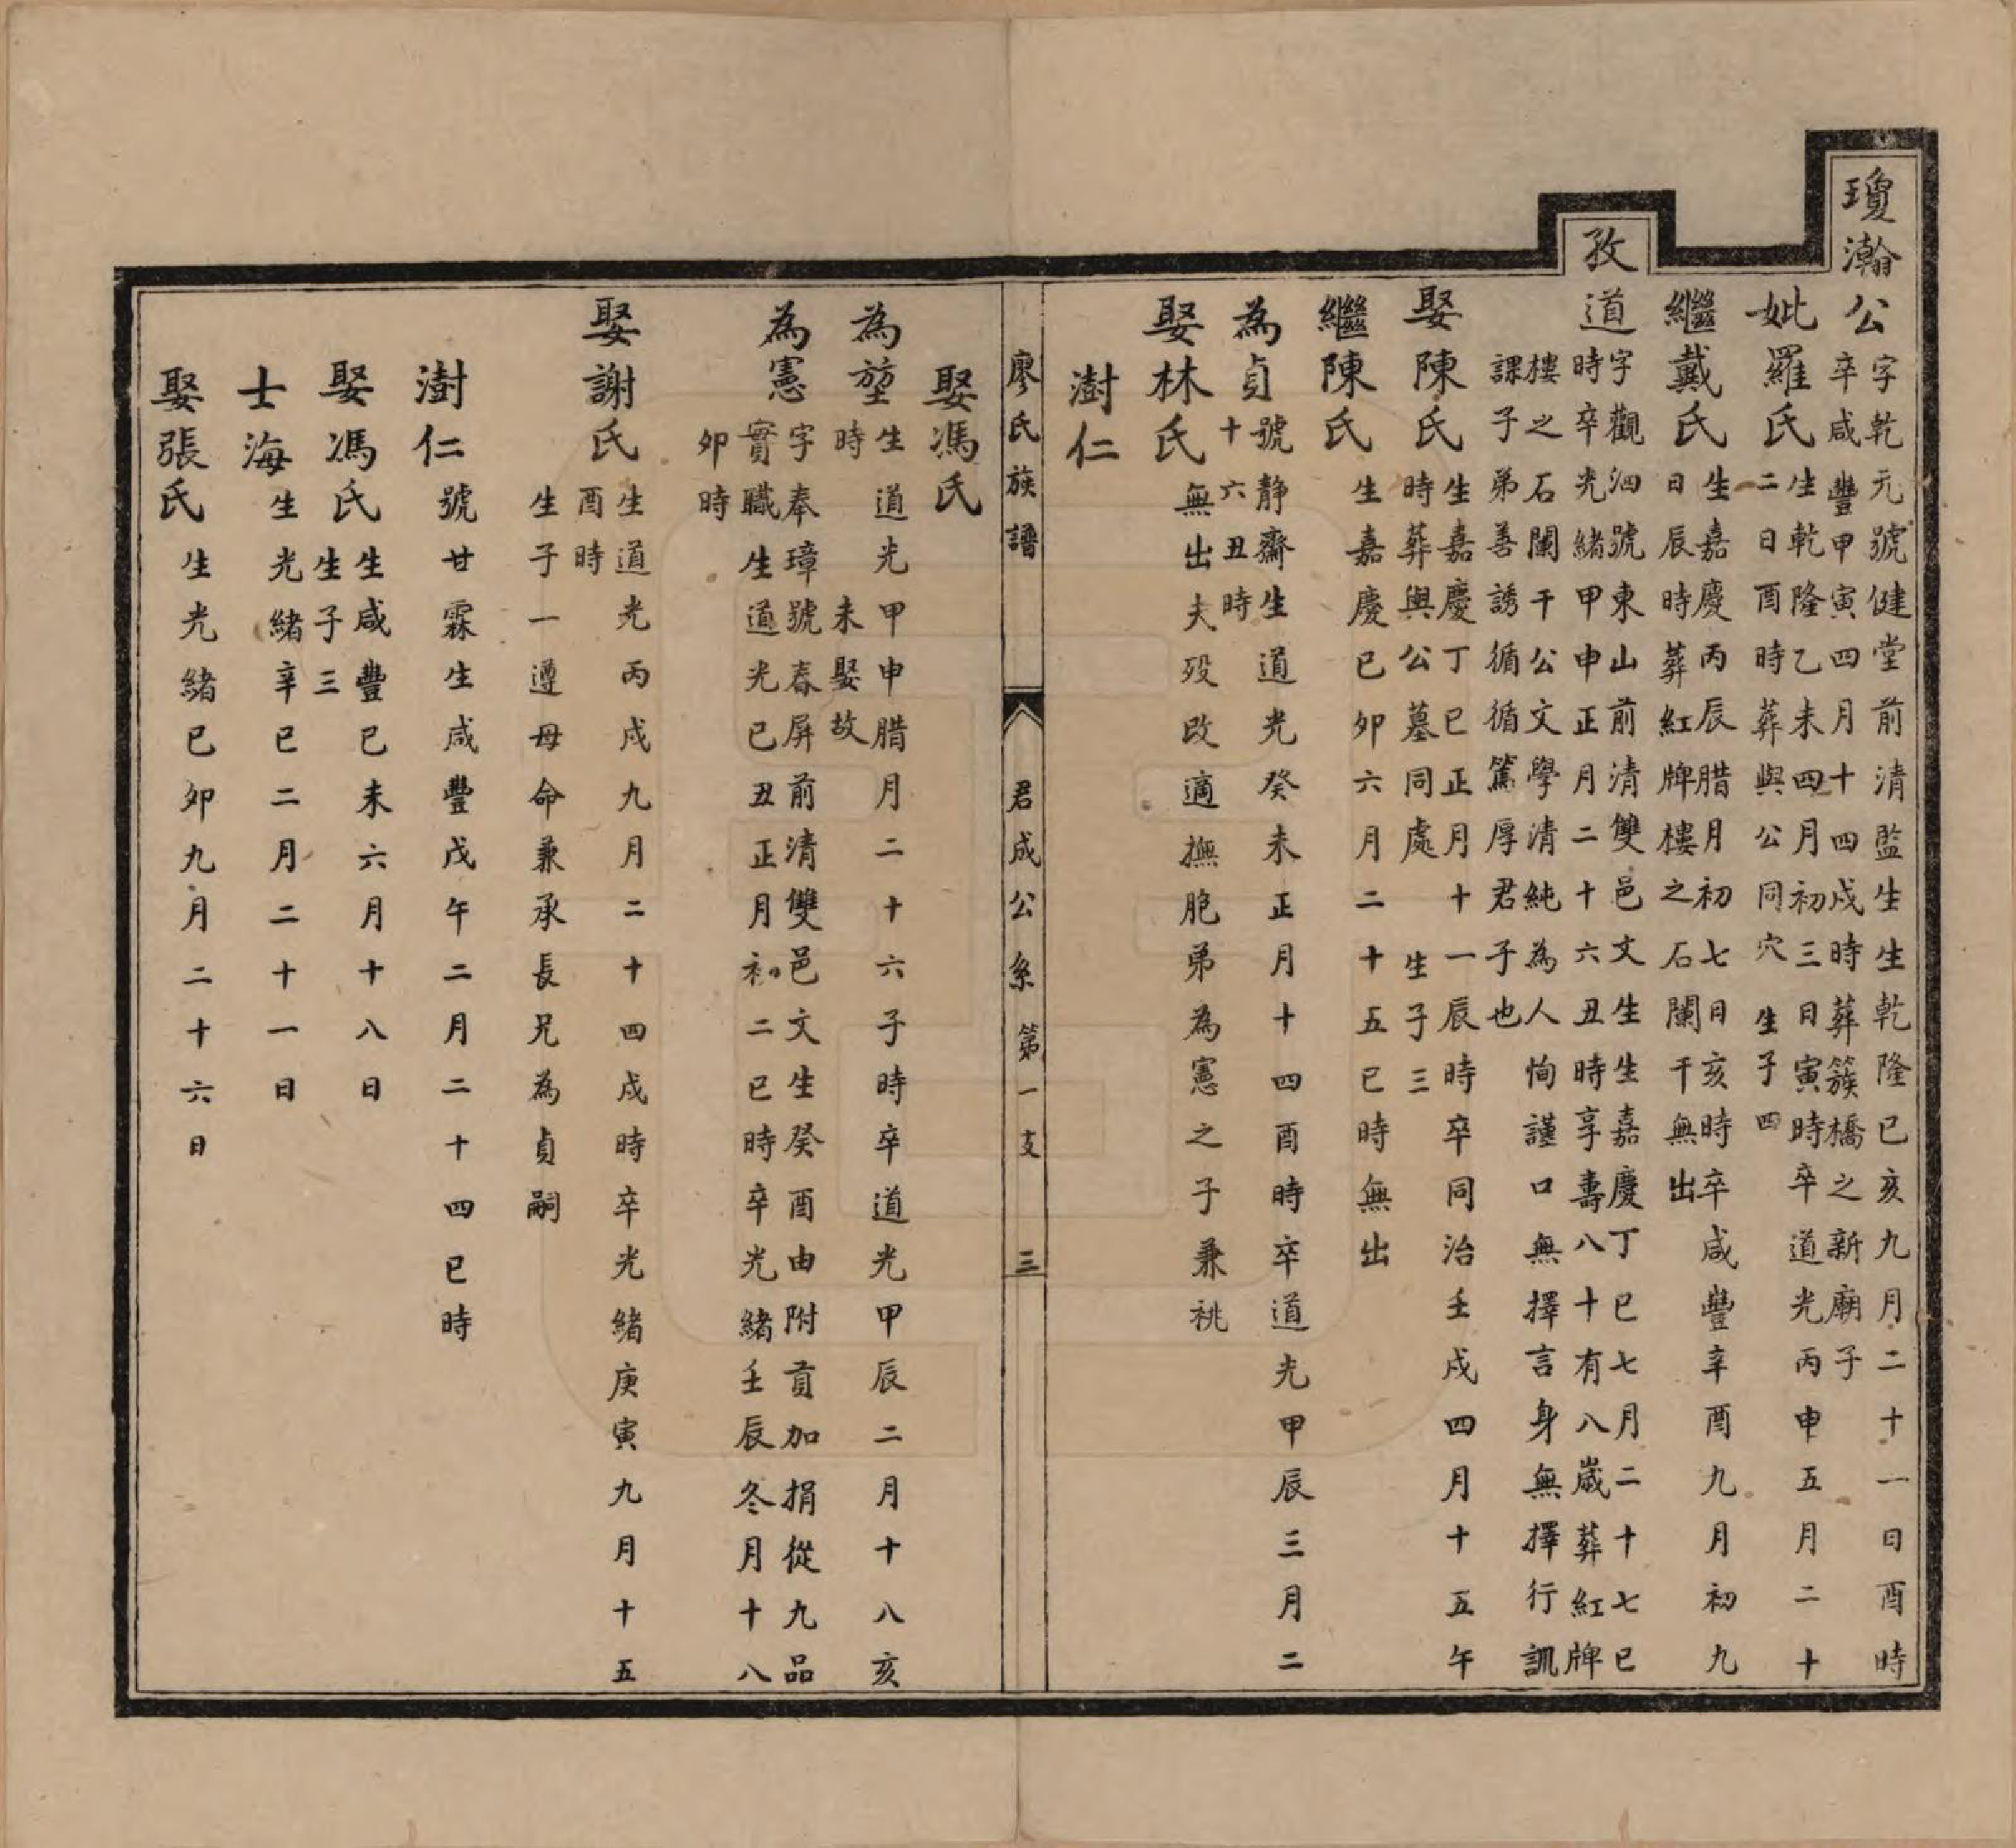 瓊瀚公
字乾元號健堂前清監生生乾隆已亥九月二十一日酉時
卒咸豐甲寅四月十四戌時葬簇橋之新廟子
妣羅氏
生乾隆乙未四月初三日寅時卒道光丙申五月二十
二日酉時葬與公同穴 生子四
繼戴氏
生嘉慶丙辰腊月初七日亥時卒咸豐辛酉九月初九
日辰時葬紅牌樓之石闌干無出
孜道
字觀泗號東山前清雙邑文生生嘉慶丁巳七月二十七巳
時卒光緒甲申正月二十六丑時享壽八十有八歲葬紅牌
樓之石闌干公文學清純為人恂謹口無擇言身無擇行訓
課子弟善誘循循篤厚君子也
娶陳氏
生嘉慶丁巳正月十一辰時卒同治壬戌四月十五午
時葬與公墓同處 生子三
繼陳氏
生嘉慶已卯六月二十五巳時無出
為貞
號靜齋生道光癸未正月十四酉時卒道光甲辰三月二
十六丑時
娶林氏
無出夫歿改適撫胞弟為憲之子兼祧
澍仁
廖氏族譜 君成公系 第一支 三
娶馮氏
為堃
生道光甲申腊月二十六子時卒道光甲辰二月十八亥
時 未娶故
為憲
字奉璋號春屏前清雙邑文生癸酉由附貢加捐從九品
實職生道光已丑正月初二巳時卒光緒壬辰冬月十八
卯時
娶謝氏
生道光丙戌九月二十四戌時卒光緒庚寅九月十五
酉時
生子一遵母命兼承長兄為貞嗣
澍仁
號甘霖生咸豐戊午二月二十四巳時
娶馮氏
生咸豐已未六月十八日
生子三
士海
生光緒辛巳二月二十一日
娶張氏
生光緒已卯九月二十六日